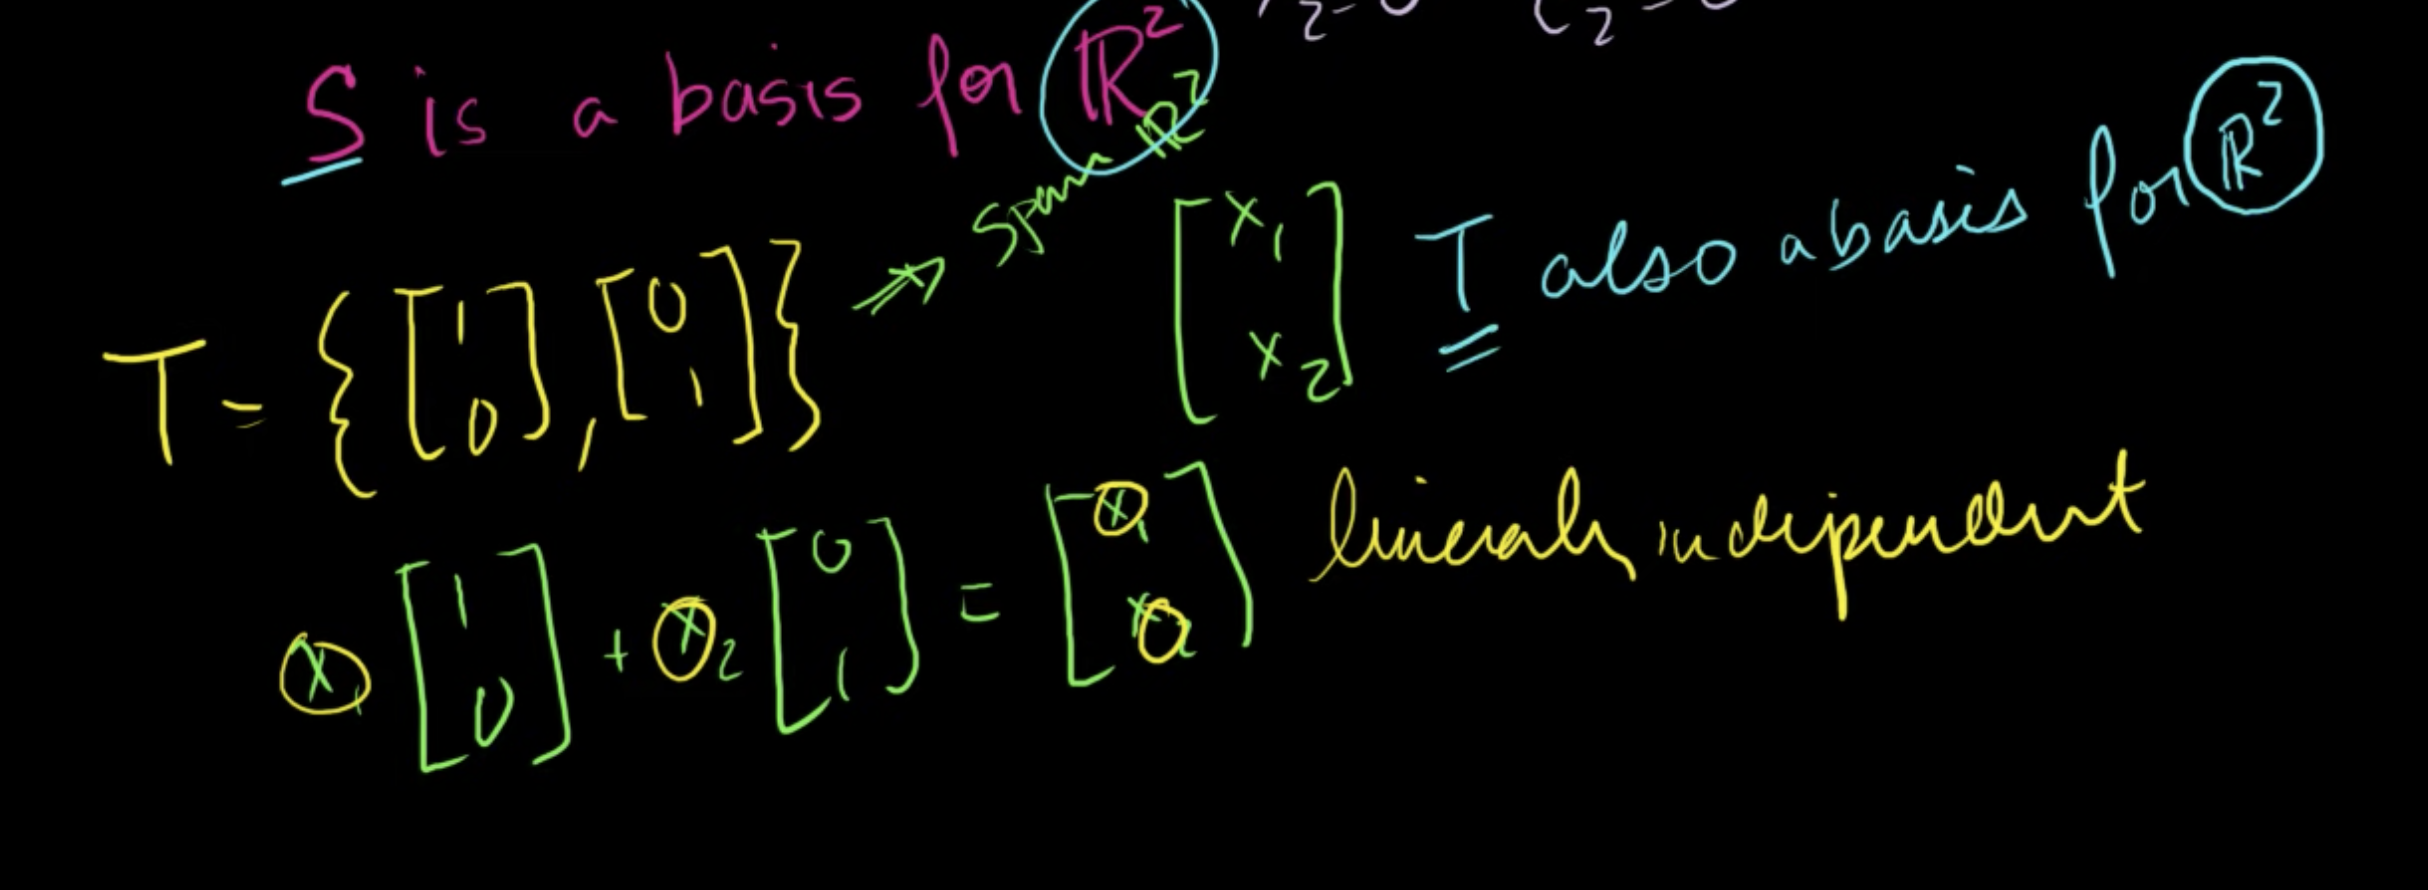 S is a basis for ℝ²
span ℝ²
T = { [1 0], [0 1] } ⇒ [x₁ x₂]
T also a basis for ℝ²
x₁ [1 0] + x₂ [0 1] = [x₁ x₂]
linearly independent